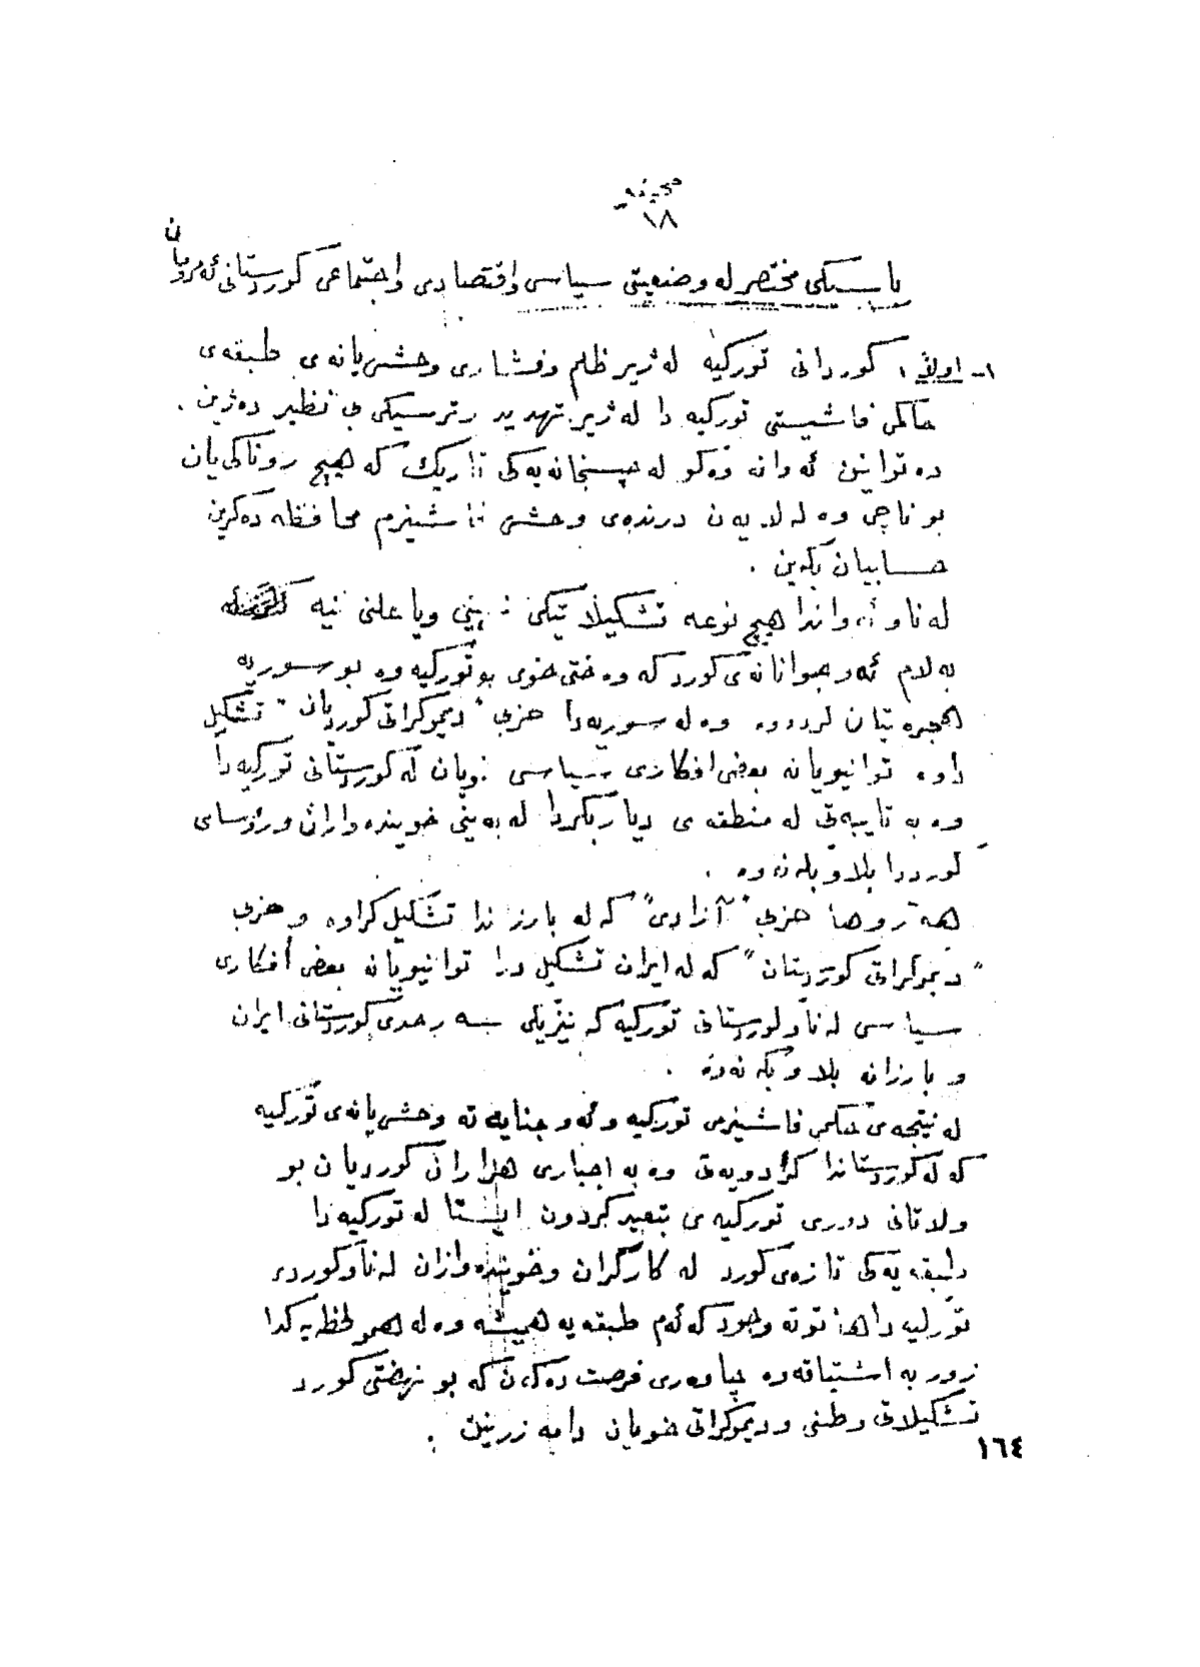 ١٨
باسێکی مختصر له وضعیتی سیاسی واقتصادی واجتماعی کوردستانی ئه مرۆیان
١- اولاً، کوردانی تورکیه له ژیر ظلم وفشاری وحشی یانه ی طبقه ی
حاکمی فاشیستی تورکیه دا له ژیر تهدید وترسیکی بی نظیر ده ژین .
ده توانین ئه وانه وه کو له حپسخانه یه کی تاریك که هیچ روناکی یان
بو ناچی وه له لایه ن درنده ی وحشی فاشیزم محافظه ده کرین
حسابیان بکه ین .
له ناو ئه واندا هیچ نوعه تشکیلاتیکی نهینی ویا علنی نیه
به لام ئه و جوانانه ی کورد که وه ختی خوی بو تورکیه وه بو سوریه
هجره تیان کردووه وه له سوریه دا حزبی "دیموکراتی کوردیان" تشکیل
داوه توانیویانه بعضی افکاری سیاسی خویان له کوردستانی تورکیه دا
وه به تایبه تی له منطقه ی دیاربکردا له به ینی خوینده واران ورؤسای
کورددا بلاو بکه نه وه .
هه روها حزبی "آزادی" که له بارزاندا تشکیل کراوه وحزبی
"دیموکراتی کوردستان" که له ایران تشکیل درا توانیویانه بعضی أفکاری
سیاسی له ناو کوردستانی تورکیه که نیزیکی به حدی کوردستانی ایران
و بارزانه بلاو بکه نه وه .
له نتیجه ی حکمی فاشیزمی تورکیه وئه و جنایه ته وحشی یانه ی تورکیه
که له کوردستاندا کردویه تی وه به اجباری هزاران کوردیان بو
ولاتانی دووری تورکیه ی تبعید کردون ایستا له تورکیه دا
طبقه یه کی تازه ی کورد له کارگران وخوینده واران له ناو کوردی
تورکیه دا هاتوته وجود که ئه م طبقه یه همیشه وه له همو لحظه یه کدا
زور به اشتیاقه وه چاوه ری فرصت ده که ن که بو نهضتی کورد
تشکیلاتی وطنی ودیموکراتی خویان دامه زرینن .
١٦٤